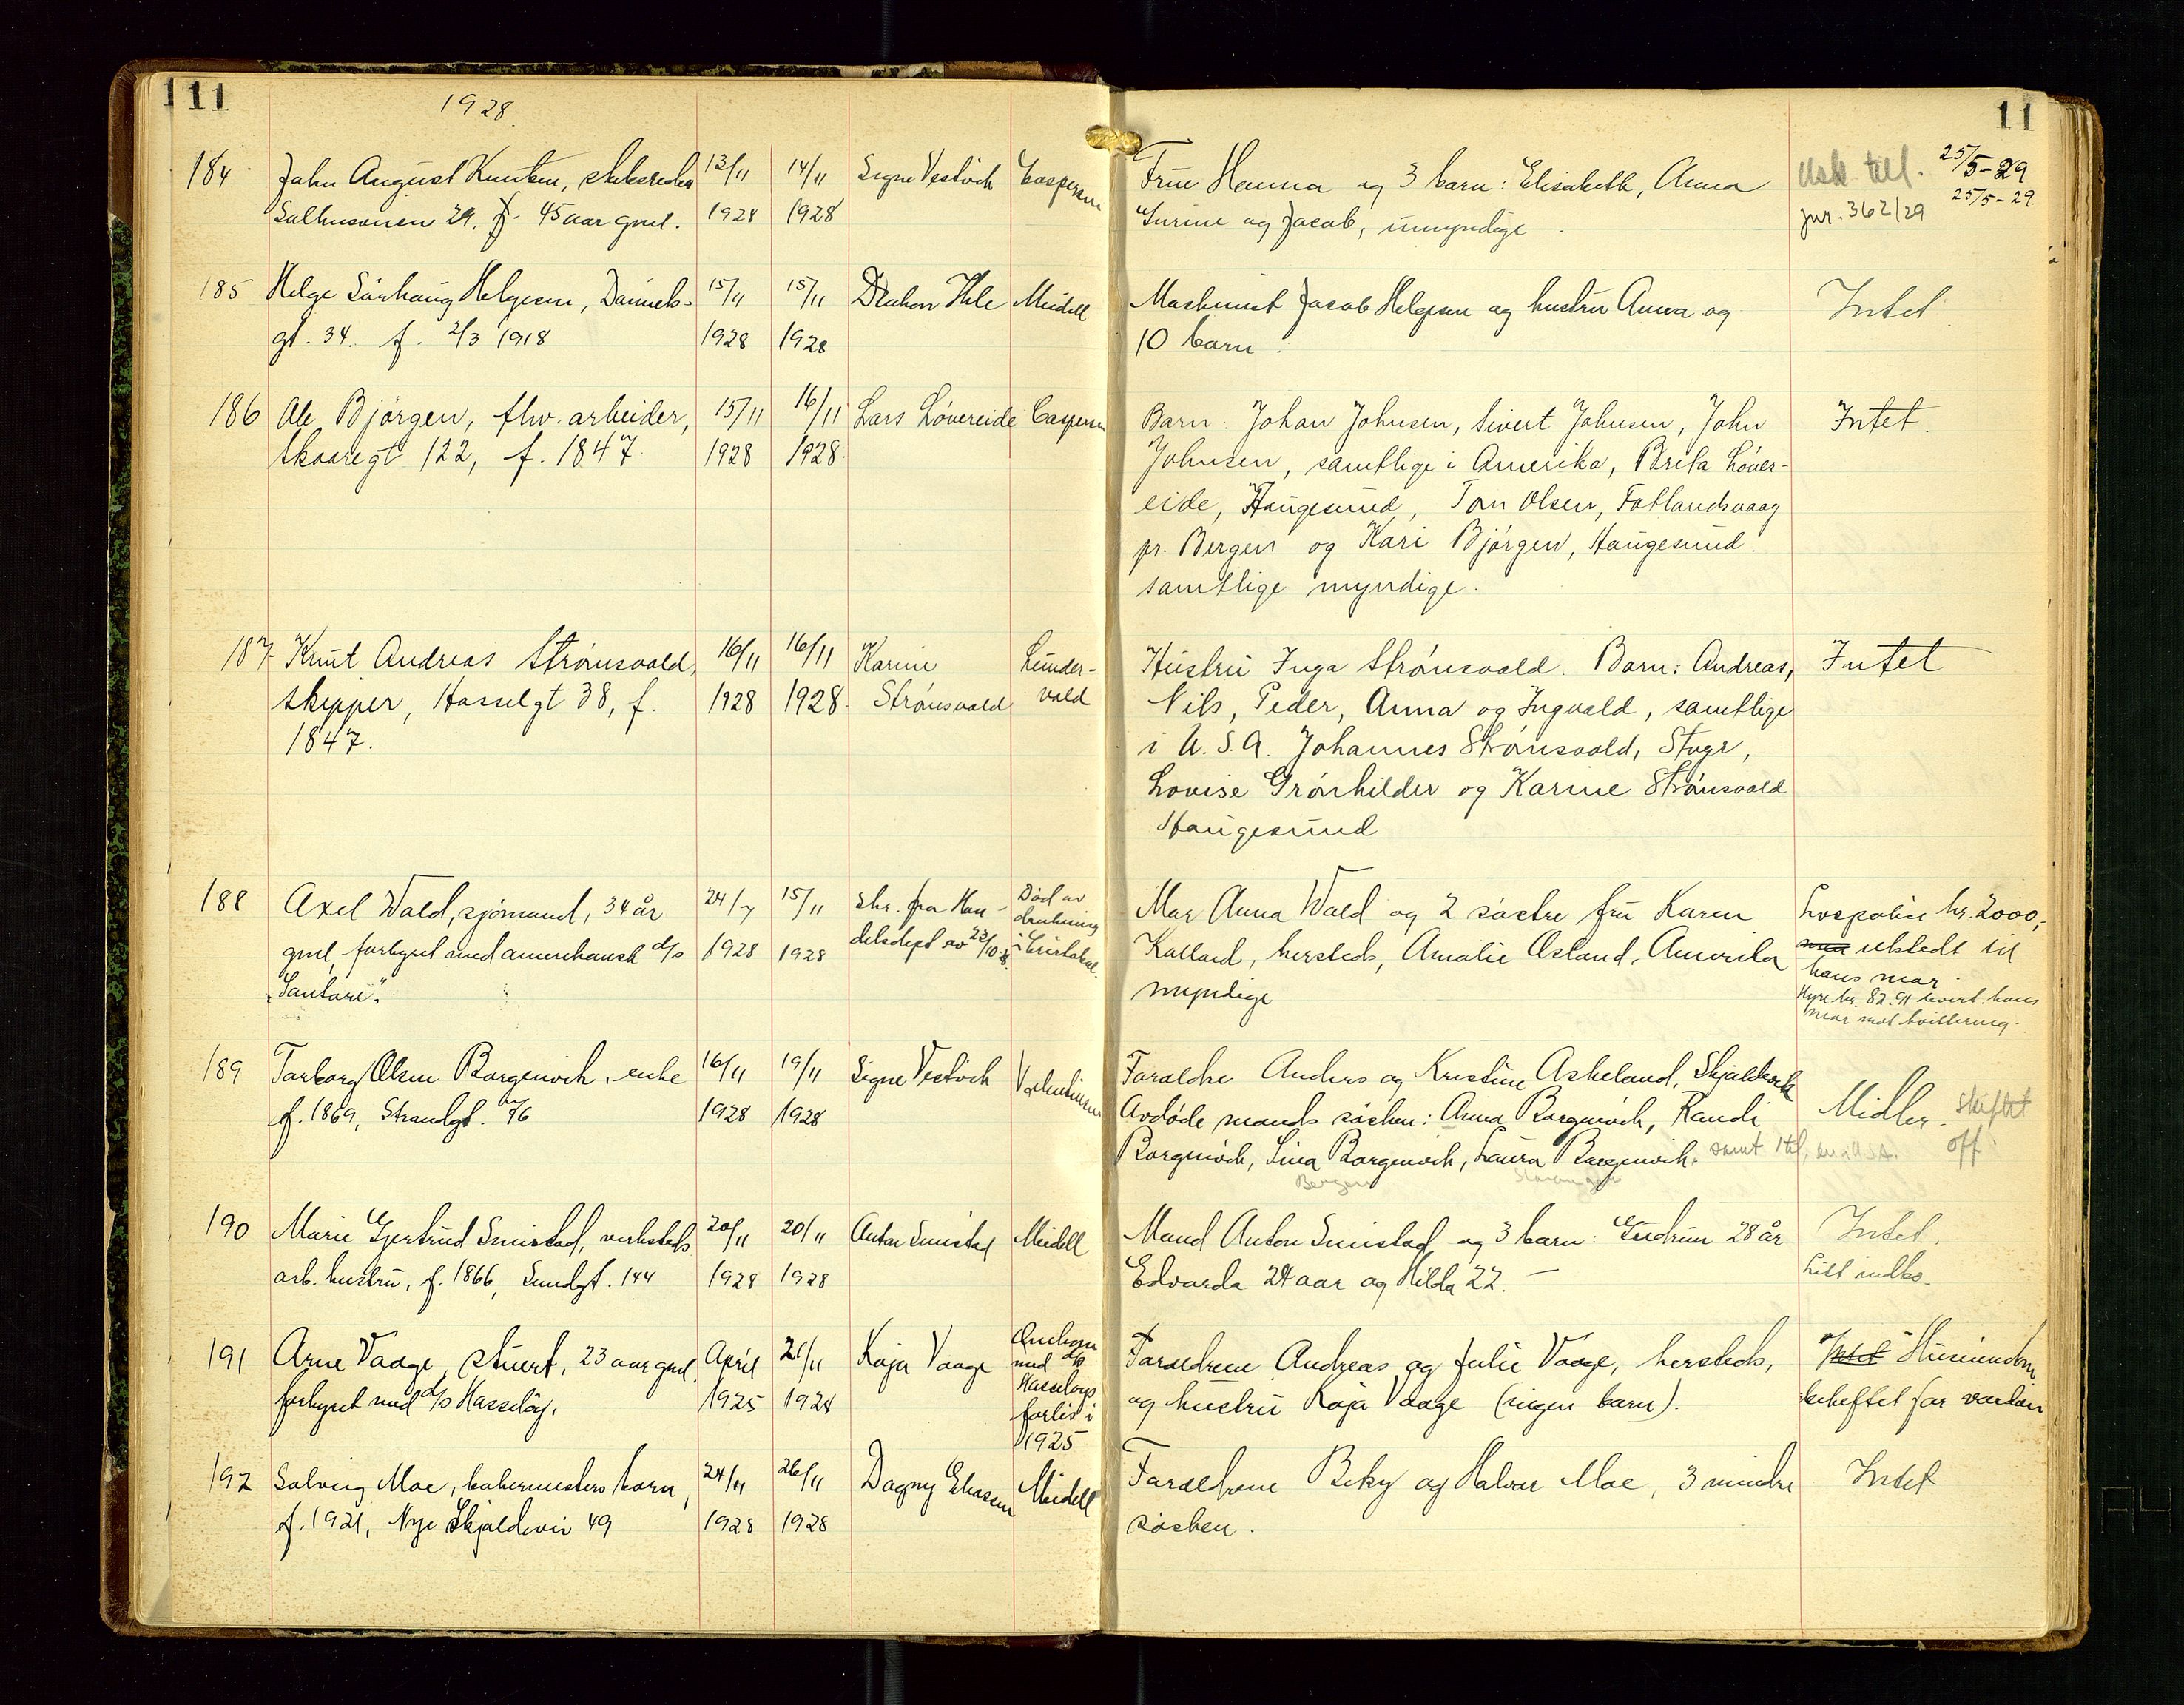 111
1928.
11
184 John August Knutsen, skibsreder 13/11 14/11 Signe Vestvik Caspersen Frue Hanna og 3 barn: Elisabeth, Anna 25/5-29
29, f. 45 aar gml. 1928 1928 og Jacob, umyndige. jnr. 362/29 25/5-29
185 Helge Sørhaug Helgesen, 15/11 15/11 Meidell Maskinist Jacob Helgesen og hustru Anna og Intet
gt. 34. f. 2/3 1918 1928 1928 10 barn.
186 Ole Bjørgen, fhv. arbeider, 15/11 16/11 Lars Løvereide Caspersen Barn: Johan Johnsen, Sivert Johnsen, John Intet.
Skaaregt 122, f. 1847. 1928 1928. Johnsen, samtlige i Amerika, Brita Løver-
eide, Haugesund, Tom Olsen, Fotlandsvaag
pr. Bergen og Kari Bjørgen, Haugesund.
samtlige myndige.
187 Knut Andreas Strønsvold, 16/11 16/11 Karine Lunder- Hustru Inga Strønsvold. Barn: Andreas, Intet
skipper, Hasselgt 38, f. 1928 1928. Strønsvold vold Nils, Peder, Anna og Ingvald, samtlige
1847. i U.S.A. Johannes Strønsvold,
Lovise Grønhilder og Karine Strønsvold
Haugesund
188 Axel Wald, sjømand, 34 år 24/7 15/11 skr. fra Han- Død av Mor Anna Wald og 2 søstre fru Karen kr. 2000,-
gml, forhyret med amerikansk d/s 1928 1928 delsdept av 23/10 28. drukning i Cristobal. hersteds, Amalie Østand, Amerika utstedt til
"Santore". myndige hans mor
Hyre kr. 82.91 levert hans
mor mot kvittering.
189 Torborg Olsen Borgenvik, enke 16/11 19/11 Signe Vestvik Forældre Anders og Kristine Askeland,
f. 1869, Strandgt. 1928 1928 Avdøde mands søsken: Anna Borgenvik, Randi Midler. skiftet
Borgenvik, Sina Borgenvik, Laura Borgenvik. samt off.
Bergen Stavanger
190 Marie Gjertrud Smistad, verksteds 20/11 20/11 Anton Smistad Meidell Mand Anton Smistad og 3 barn: Gudrun 28 år Intet.
arb. hustru, f. 1866, Sundgt. 144 1928 1928 Edvarda 24 aar og Hilda 22. — Litt indbo.
191 Arne Vaage, stuert, 23 aar gml. April 21/11 Kaja Vaage Omkom Forældrene Andreas og Julie Vaage, hersteds, Intet Huseiendom
forhyret med d/s Hasseløy. 1925 1928 med d/s og hustru Kaja Vaage (ingen barn). beheftet for
Hasseløys
forlis i
1925
192 Solveig Moe, bakermesters barn, 24/11 26/11 Dagny Eliassen Meidell Forældrene og Halvor Moe, 3 mindre Intet
f. 1921, Nye Skjoldavei 49 1928 1928 søsken.